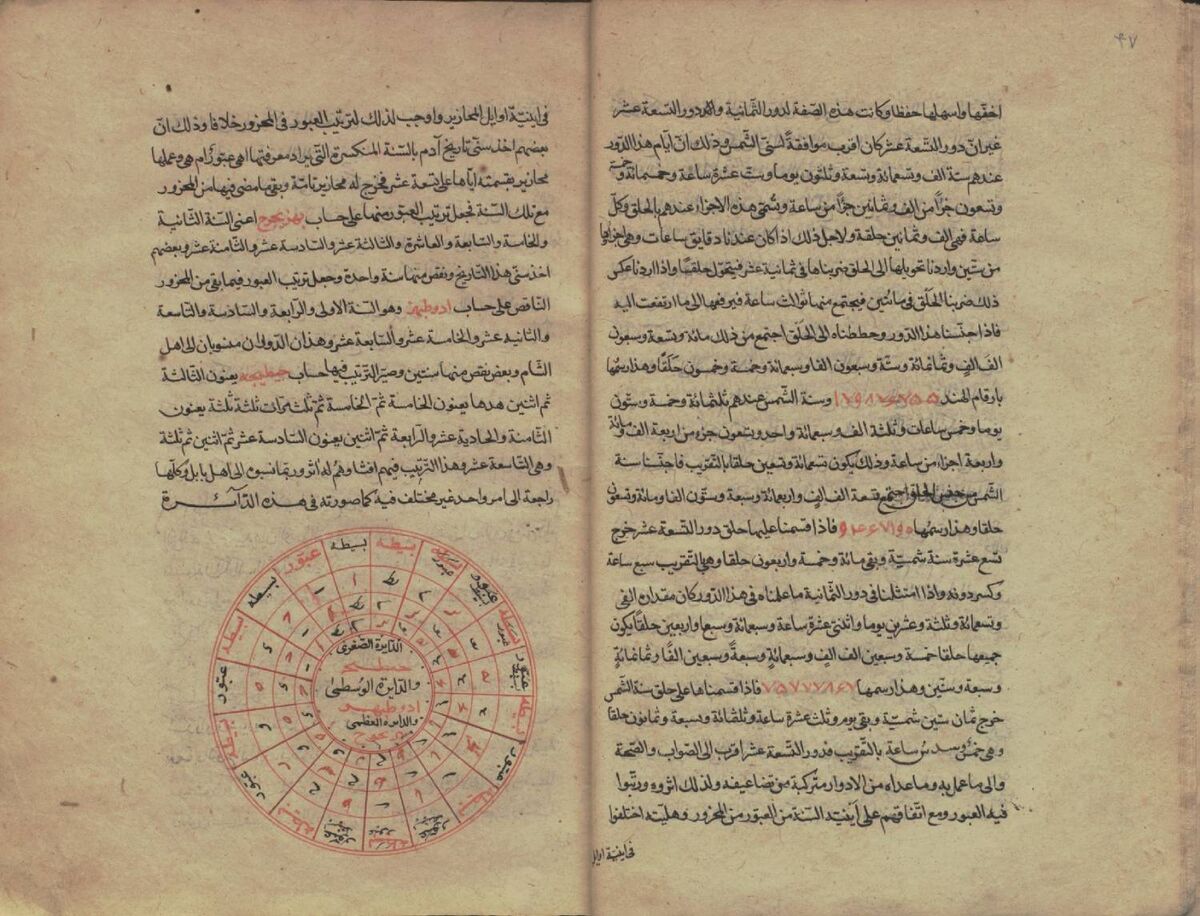 ٤٧
اخفّها واسهلها حفظا وكانت هذه الصّفة لدور الثّمانية ولدور التّسعة عشر
غير انّ دور التّسعة عشر كان اقرب موافقةً لسنى الشّمس وذلك انّ ايّام هذا الدّور
عندهم ستة الف وتسعمائة وتسعة وثلثون يوما وستّ عشرة ساعة وخمسمائة وخمسة
وتسعون جزأ من الف وثمانين جزأ من ساعة وتسمّى هذه الاجزاء عندهم بالحلق وكلّ
ساعة فهى الف وثمانين حلقة ولاجل ذلك اذا كان عندنا دقايق ساعات وهى اجزاؤها
من ستّين واردنا تحويلها الى الحلق ضربناها فى ثمانية عشر فيتحوّل حلقا واذا اردنا عكس
ذلك ضربنا الحلق فى مائتين فيجتمع منها ثوالث ساعة فيرفعها الى ما ارتفعت اليه
فاذا جنّسنا هذا الدّور وحططناه الى الحلق اجتمع من ذلك مائة وتسعة وسبعون
الف الف وثمانمائة وستّة وسبعون الفا وسبعمائة وخمسة وخمسون حلقا وهذا رسمها
بارقام الهند ١٧٩٨٧٦٧٥٥ وسنة الشّمس عندهم ثلثمائة وخمسة وستّون
يوما وخمس ساعات وثلثة الف وسبعمائة واحد وتسعون جزء من اربعة الف ومائة
واربعة اجزاء من ساعة وذلك يكون تسعمائة وتسعين حلقا بالتّقريب فاجنّسنا سنة
الشّمس من جنس الحلق اجتمع تسعة الف الف واربعمائة وسبعة وستّون الفا ومائة وتسعون
حلقا وهذا رسمها ٩٤٦٧١٩٠ فاذا قسمنا عليها حلق دور التّسعة عشر خرج
تسع عشرة سنة شمسيّة وبقى مائة وخمسة واربعون حلقا وهى بالتّقريب سبع ساعة
وكسر دونه واذا امتثلنا فى دور الثّمانية ما علمناه فى هذا الدّور كان مقداره الفى
وتسعمائة وثلثة وعشرين يوما واثنتى عشرة ساعة وسبعمائة وسبعا واربعين حلقا يكون
جميعها حلقا خمسة وسبعين الف الف وسبعمائةٍ وسبعةً وسبعين الفًا وثمانمائةٍ
وسبعة وستّين وهذا رسمها ٧٥٧٧٧٨٦٧ فاذا قسمناها على حلق سنة الشّمس
خرج ثمان سنين شمسيّة وبقى يوم وثلث عشرة ساعة وثلثمائة وسبعة وثمانون حلقا
وهى خمس وسدس ساعة بالتّقريب فدور التّسعة عشر اقرب الى الصّواب والصّحة
والى ما عمل به وما عداه من الادوار متركبة من تضاعيفه ولذلك اثروه ورتّبوا
فيه العبور ومع اتّفاقهم على اينيّة السّنة من العبور من المحزور وهليّته اختلفوا
فى اينيّة اوايل
فى اينيّة اوايل المحازير واوجب لذلك لترتيب العبور فى المحزور خلافا وذلك انّ
بعضهم اخذ سنى تاريخ آدم بالسّنة المنكسرة الّتى يراد معرفتها اهى عبور ام هى وعملها
محازير بقسمته ايّاها على تسعة عشر فخرج له محازير تامّة وبقى ما مضى فيها من المحزور
مع تلك السّنة فجعل ترتيب العبور منها على حساب بهزيجوح اعنى السّنة الثّانية
والخامسة والسّابعة والعاشرة والثّالثة عشر والسّادسة عشر والثّامنة عشر وبعضهم
اخذ سنى هذا التّاريخ ونقص منها سنة واحدة وجعل ترتيب العبور فيما بقى من المحزور
النّاقص على حساب ادوطبهز وهو السّنة الاولى والرّابعة والسّادسة والتّاسعة
والثّانيه عشر والخامسة عشر والسّابعة عشر وهذان الدّوران منسوبان الى اهل
الشّام وبعض نقص منها سنتين وصيّر التّرتيب فيها حساب جبطبجه يعنون الثّالثة
ثم اثنين هدها يعنون الخامسة ثمّ الخامسة ثمّ ثلث مرّات ثلثة ثلثة يعنون
الثّامنة والحادية عشر والرّابعة ثمّ اثنين يعنون السّادسة عشر ثمّ اثنين ثمّ ثلثة
وهى التّاسعة عشر وهذا التّرتيب فيهم افشا وهم له اثر وربما نسبوه الى اهل بابل وكلّها
راجعة الى امر واحد غير مختلف فيه كما صورته فى هذه الدّآئرة
الدّايرة الصّغرى
والدّايرة الوسطى
ادوطبهز
والدايره العظمى
بسيطه
عبور
بسيطه
عبور
بسيطه
عبور
بسيطه
عبور